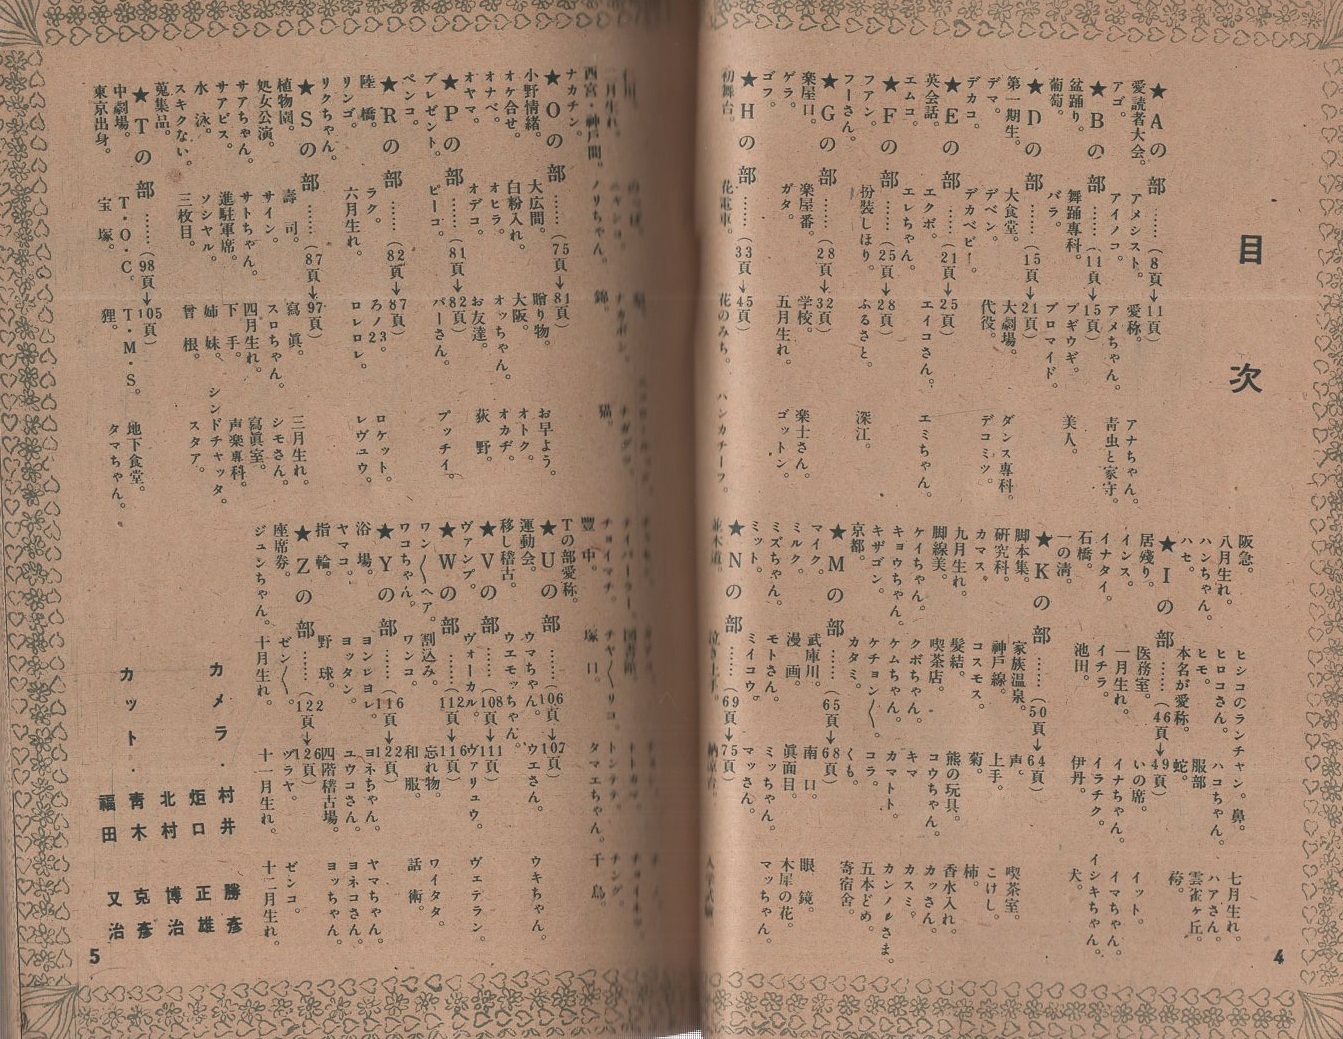 目次
★Aの部……(8頁→11頁)
愛読者大会。 アメシスト。 愛称。 アナちゃん。
アゴ。 アイノコ。 アメちゃん。 青虫と家守。
★Bの部……(11頁→15頁)
盆踊り。 舞踊專科。 ブギウギ。 美人。
葡萄。 バラ。 ブロマイド。
★Dの部……(15頁→21頁)
第一期生。 大食堂。 大劇場。 ダンス專科。
デマ。 デベン。 代役。 デコミツ。
デカコ。 デカベビー。
★Eの部……(21頁→25頁)
英会話。 エクボ。 エイコさん。 エミちゃん。
エムコ。 エレちゃん。
★Fの部……(25頁→28頁)
ファン。 扮装しほり。 ふるさと。 深江。
フーさん。
★Gの部……(28頁→32頁)
楽屋口。 楽屋番。 学校。 楽士さん。
ゲラ。 ガタ。 五月生れ。 ゴットン。
ゴフ。
★Hの部……(33頁→45頁)
初舞台。 花電車。 花のみち。 ハンカチーフ。
阪急。 ヒシコのランチャン。 鼻。 七月生れ。
八月生れ。 ヒロコさん。 ハコちゃん。 ハアさん。
ハンちゃん。 ヒモ。 服部 雲雀ヶ丘。
ハセ。 本名が愛称。 蛇。 袴。
★Iの部……(46頁→49頁)
居殘り。 医務室。 いの席。 イット。
インス。 一月生れ。 イナちゃん。 イマちゃん。
イナタイ。 イチラ。 イラチク。 イシキちゃん。
石橋。 池田。 伊丹。 犬。
一の清。
★Kの部……(50頁→64頁)
脚本集。 家族温泉。 声。 喫茶室。
研究科。 神戸線。 上手。 こけし。
カマス。 コスモス。 菊。 柿。
九月生れ。 髪結。 熊の玩具。 香水入れ。
脚線美。 喫茶店。 コウちゃん。 カッさん。
ケイちゃん。 クボちゃん。 キマ カスミ。
キョウちゃん。 ケムちゃん。 カマトト。 カンノルさま。
キザゴン。 ケチョン〱 コラ。 五本どめ。
京都。 カタミ。 くも。 寄宿舎。
★Mの部……(65頁→68頁)
マイク。 武庫川。 南口。 眼鏡。
ミルク。 漫画。 眞面目。 木犀の花。
ミズちゃん。 モトさん。 ミッちゃん。 マッちゃん。
ミット。 ミイコウ。 マッさん。
★Nの部……(69頁→75頁)
並木道。 泣き上手。 納涼台。 入学試験
4
二月生れ。
西宮・神戸間。 ノリちゃん。 錦。 猫。
ナカチン。
★Oの部……(75頁→81頁)
小野情緒。 大広間。 贈り物。 お早よう。
オケ合せ。 白粉入れ。 大阪。 オトク。
オナベ。 オヒラ。 オッちゃん。 オカヂ。
オヤマ。 オデコ。 お友達。 荻野。
★Pの部……(81頁→82頁)
プレゼント。 ピーコ。 パーさん。 プッチイ。
ペンコ。
★Rの部……(82頁→87頁)
陸橋。 ラク。 ろノ23。 ロケット。
リンゴ。 六月生れ。 ロレロレ。 レヴュウ。
リクちゃん。
★Sの部……(87頁→97頁)
植物園。 壽司。 寫眞。 三月生れ。
処女公演。 サイン。 スロちゃん。 シモさん。
サアちゃん。 サトちゃん。 四月生れ。 寫眞室。
サアビス。 進駐軍席。 下手。 声楽專科。
水泳。 ソシヤル。 姉妹。 シンドチャッタ。
スキクない。 三枚目。 曾根。 スタア。
蒐集品。
★Tの部……(98頁→105頁)
中劇場。 T・O・C。 T・M・S。 地下食堂。
東京出身。 宝塚。 狸。 タマちゃん。
チョイマチ。
豊中。 塚口。 タマエちゃん。 千鳥。
Tの部愛称。
★Uの部……(106頁→107頁)
運動会。 ウマちゃん。 ウエさん。 ウキちゃん。
移し稽古。 ウエモッちゃん。
★Vの部……(108頁→111頁)
ヴァンプ。 ヴォーカル。 ヴァリュウ。 ヴェテラン。
★Wの部……(112頁→116頁)
ワン〱ヘア。 割込み。 忘れ物。 ワイタタ。
ワコちゃん。 ワンコ。 和服。 話術。
★Yの部……(116頁→122頁)
浴場。 ヨンレヨレ。 ヨネちゃん。 ヤマちゃん。
ヤマコ。 ヨッタン。 ユウコさん。 ヨネコさん。
指輪。 野球。 四階稽古場。 ヨッちゃん。
★Zの部……(122頁→126頁)
座席券。 ゼン〱。 ヅラヤ。 ゼンコ。
ジュンちゃん。 十月生れ。 十一月生れ。 十二月生れ。
カメラ・村井勝彥
炬口正雄
北村博治
カット・靑木克彥
福田又治
5